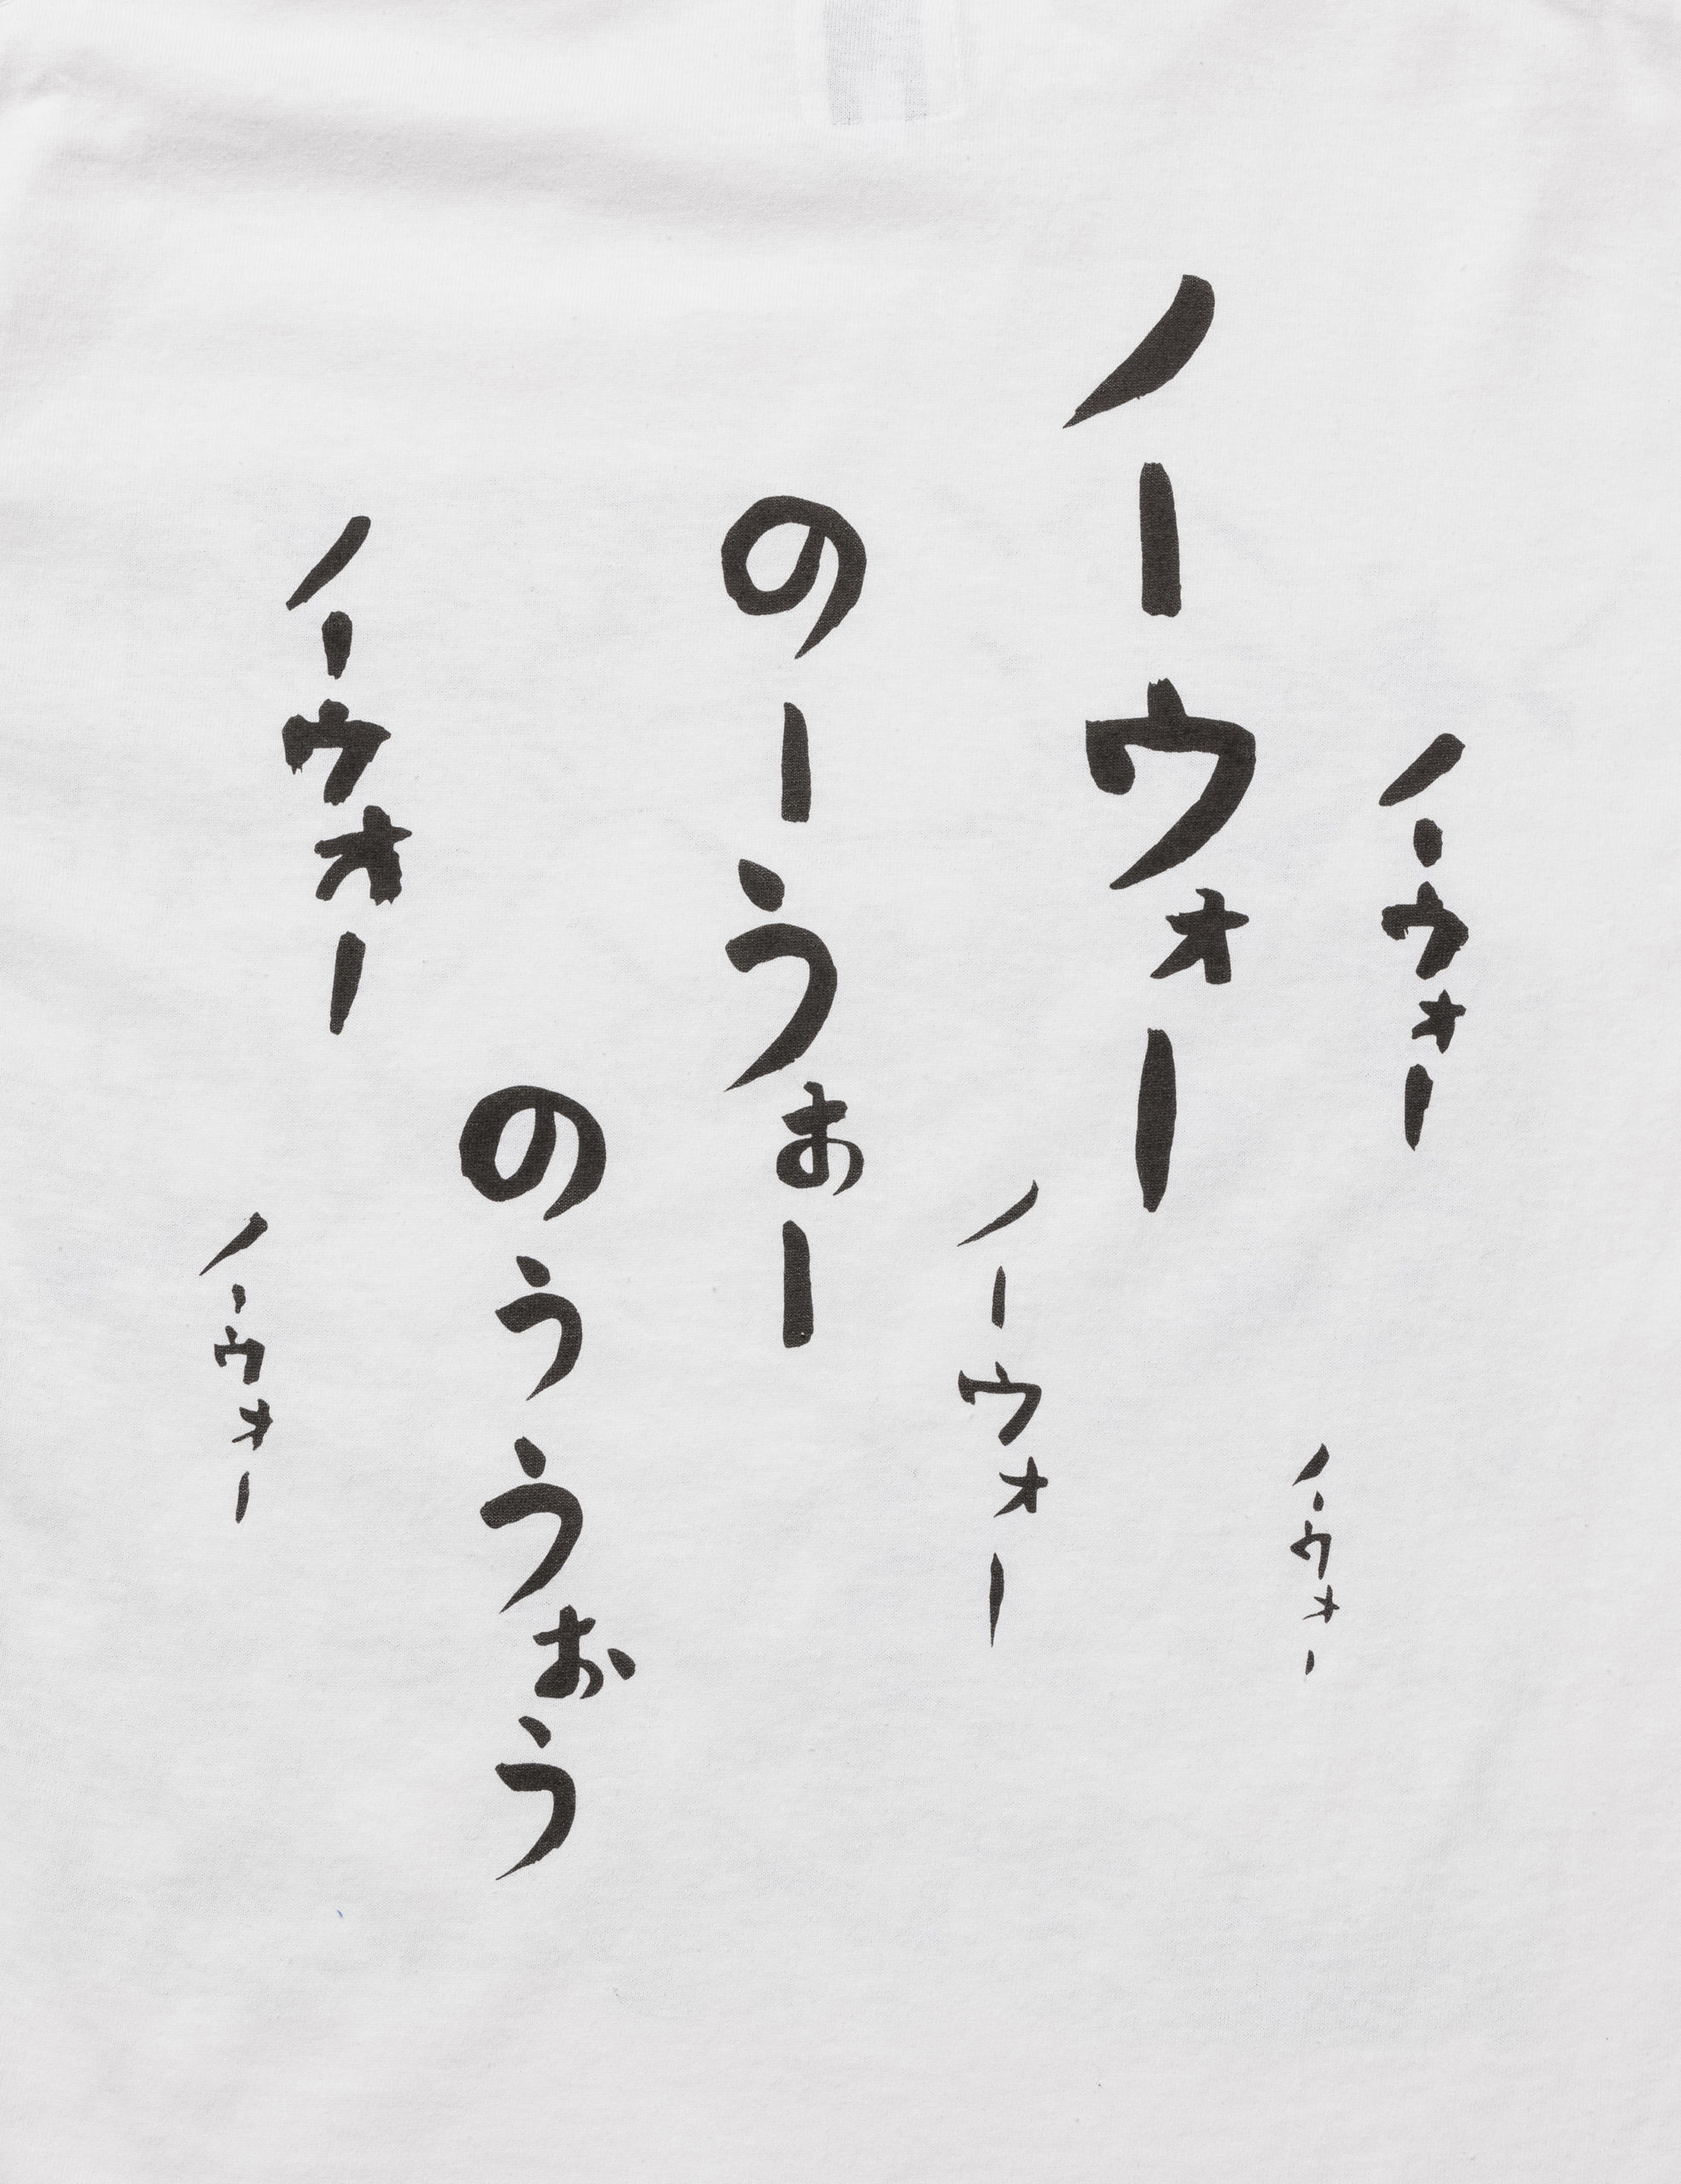 ノーウォー
ノーウォー
ノーウォー
ノーウォー
のーうぉー
のううぉう
ノーウォー
ノーウォー